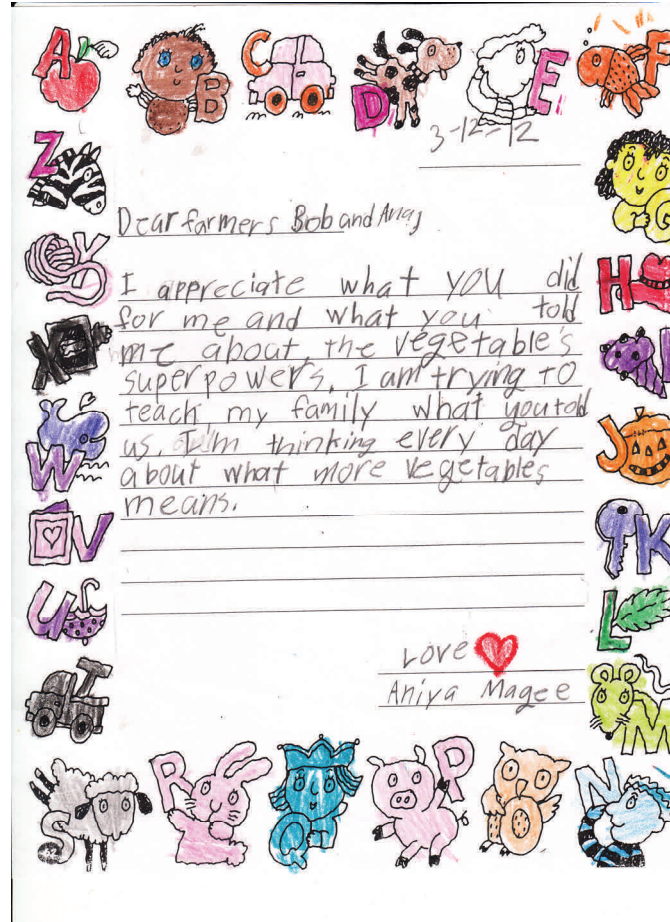 A B C D E F
3-12-12
Z
Dear farmers Bob and
Y
I appreciate what you did
H
for me and what you told
X
me about the vegetable's
I
superpowers. I am trying to
teach my family what you told
J
W
us. I'm thinking every day
about what more vegetables
means.
V
K
U
L
Love
T
Aniya Magee
M
S R Q P O N